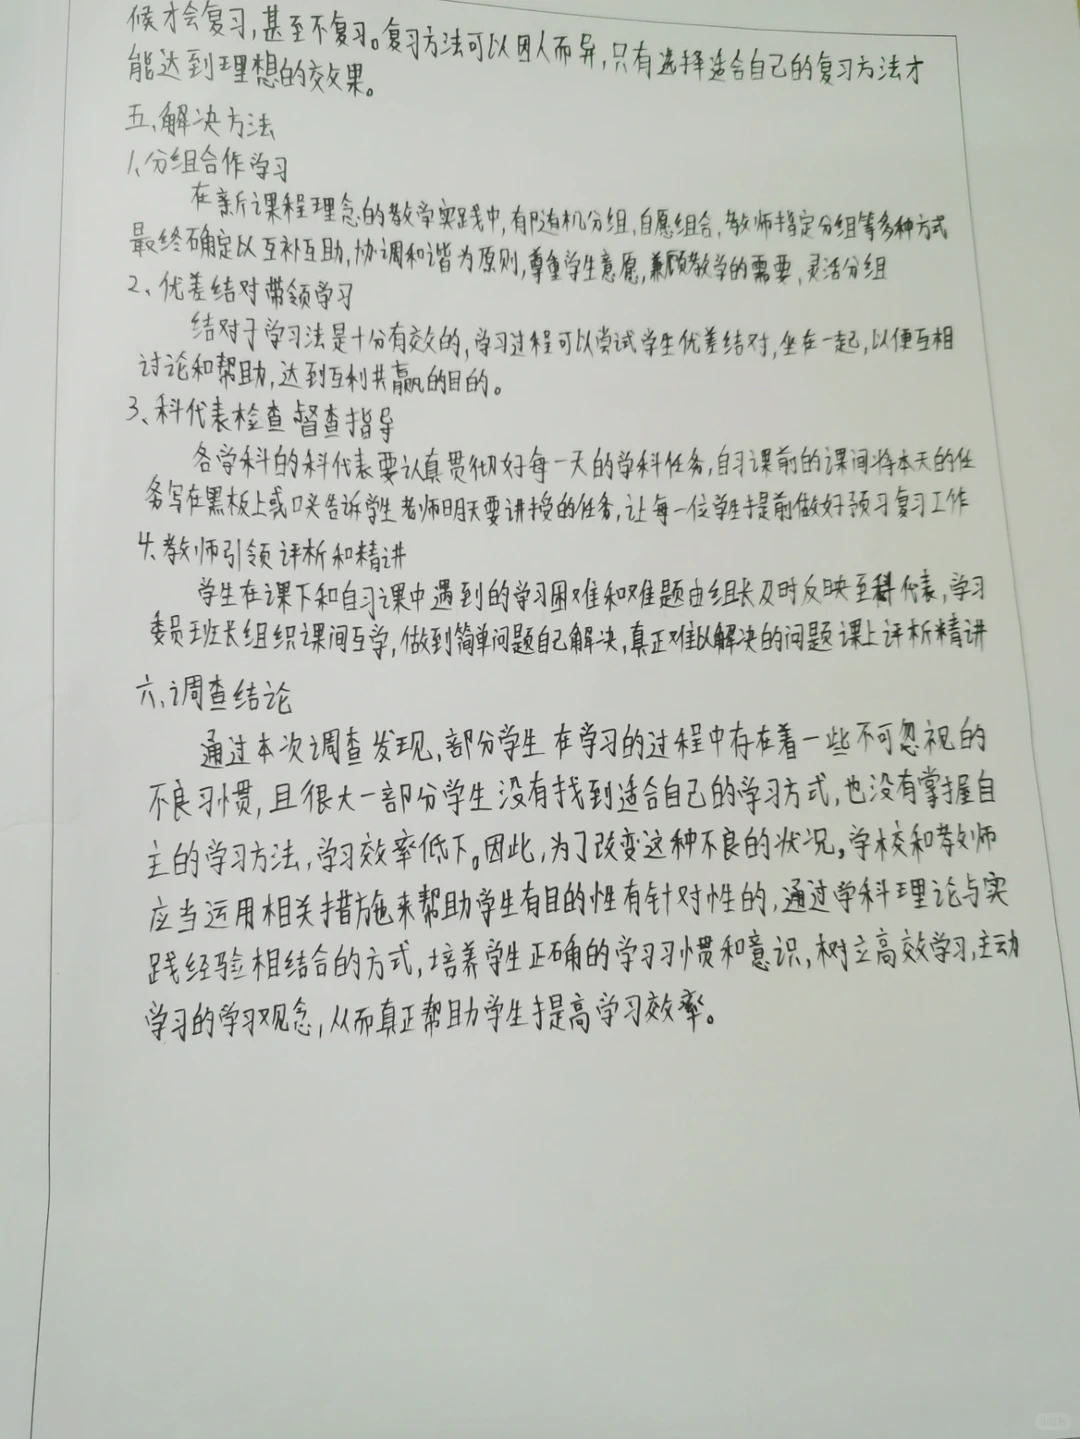 候才会复习,甚至不复习。复习方法可以因人而异,只有选择适合自己的复习方法才
能达到理想的效果。
五、解决方法
1、分组合作学习
在新课程理念的教学实践中,有随机分组,自愿组合,教师指定分组等多种方式
最终确定以互补互助,协调和谐为原则,尊重学生意愿,兼顾教学的需要,灵活分组
2、优差结对带领学习
结对子学习法是十分有效的,学习过程可以尝试学生优差结对,坐在一起,以便互相
讨论和帮助,达到互利共赢的目的。
3、科代表检查督查指导
各学科的科代表要认真贯彻好每一天的学科任务,自习课前的课间将本天的任
务写在黑板上或口头告诉学生老师明天要讲授的任务,让每一位学生提前做好预习复习工作
4、教师引领评析和精讲
学生在课下和自习课中遇到的学习困难和难题由组长及时反映至科代表,学习
委员班长组织课间互学,做到简单问题自己解决,真正难以解决的问题课上评析精讲
六、调查结论
通过本次调查发现,部分学生在学习的过程中存在着一些不可忽视的
不良习惯,且很大一部分学生没有找到适合自己的学习方式,也没有掌握自
主的学习方法,学习效率低下。因此,为了改变这种不良的状况,学校和教师
应当运用相关措施来帮助学生有目的性有针对性的,通过学科理论与实
践经验相结合的方式,培养学生正确的学习习惯和意识,树立高效学习,主动
学习的学习观念,从而真正帮助学生提高学习效率。